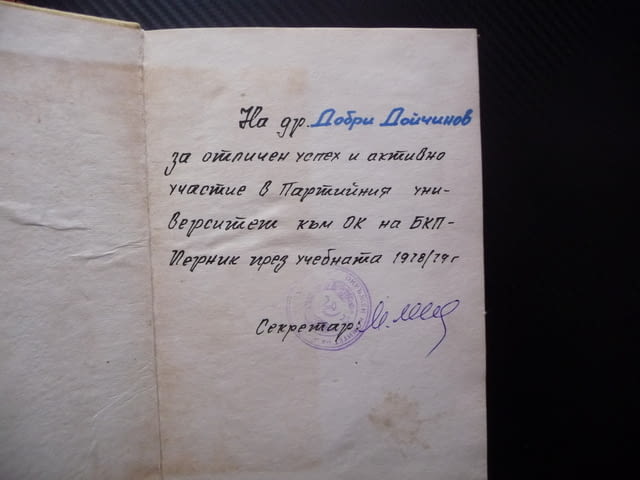 На др. Добри Дойчинов
за отличен успех и активно
участие в Партийния уни-
верситет към ОК на БКП-
Перник през учебната 1978/79 г
Секретар: